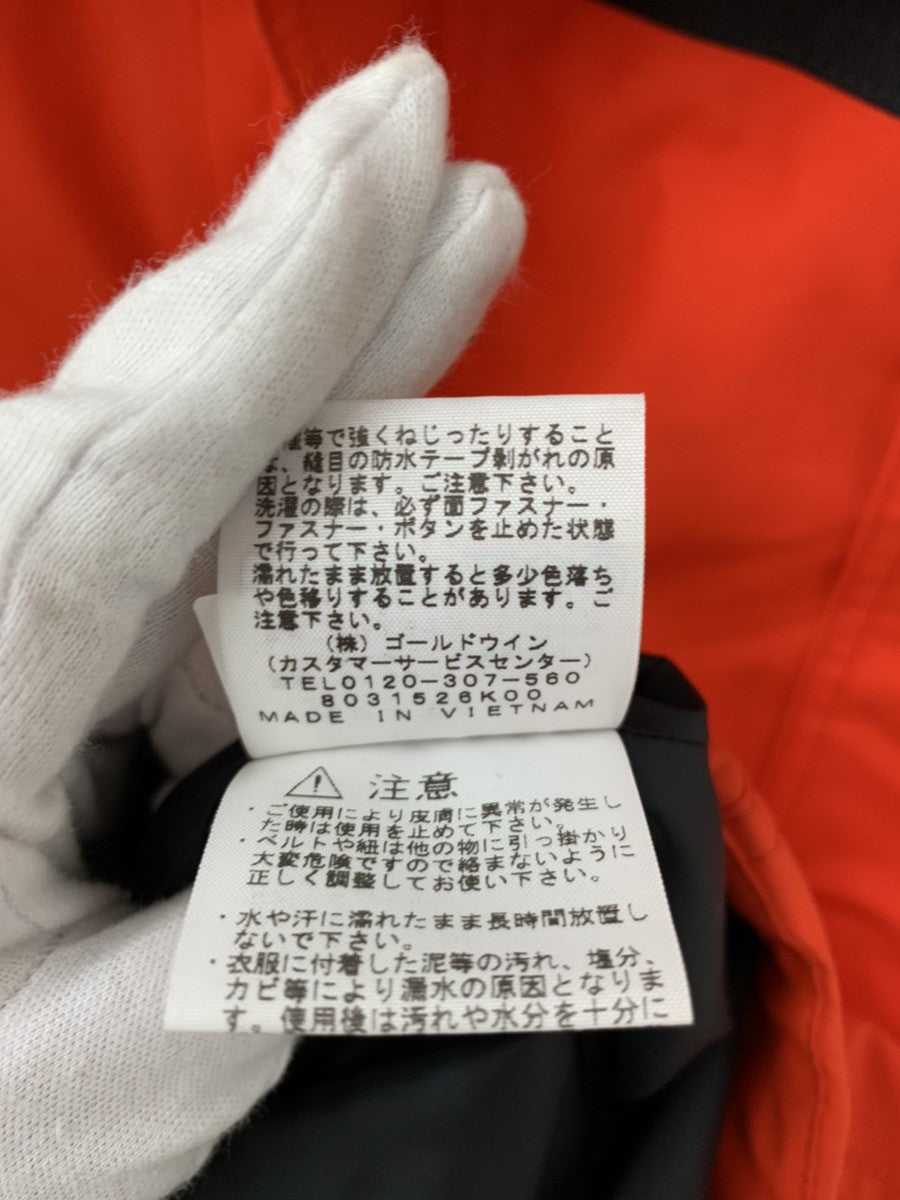 等で強くねじったりすること
は、縫目の防水テープ剝がれの原
因となります。ご注意下さい。
洗濯の際は、必ず面ファスナー・
ファスナー・ボタンを止めた状態
で行って下さい。
濡れたまま放置すると多少色落ち
や色移りすることがあります。ご
注意下さい。
(株)ゴールドウイン
(カスタマーサービスセンター)
TEL0120-307-560
8031526K00
MADE IN VIETNAM
⚠ 注意
・ご使用により皮膚に異常が発生し
た時は使用を止めて下さい。
・ベルトや紐は他の物に引っ掛かり
大変危険ですので絡まないように
正しく調整してお使い下さい。
・水や汗に濡れたまま長時間放置し
ないで下さい。
・衣服に付着した泥等の汚れ、塩分、
カビ等により漏水の原因となりま
す。使用後は汚れや水分を十分に